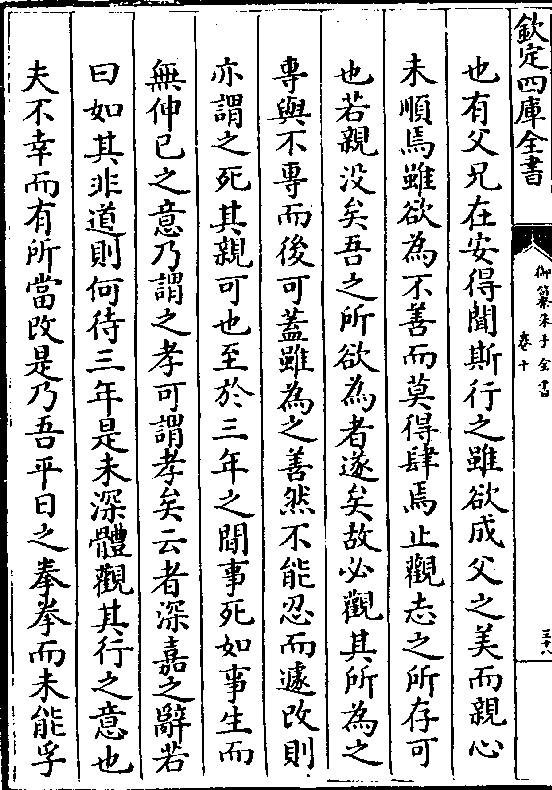 欽定四庫全書
御纂朱子全書
卷十
三十八
也有父兄在安得聞斯行之雖欲成父之美而親心
未順焉雖欲為不善而莫得肆焉止觀志之所存可
也若親没矣吾之所欲為者遂矣故必觀其所為之
專與不專而後可蓋雖為之善然不能忍而遽改則
亦謂之死其親可也至於三年之間事死如事生而
無伸已之意乃謂之孝可謂孝矣云者深嘉之辭若
曰如其非道則何待三年是未深體觀其行之意也
夫不幸而有所當改是乃吾平日之拳拳而未能孚